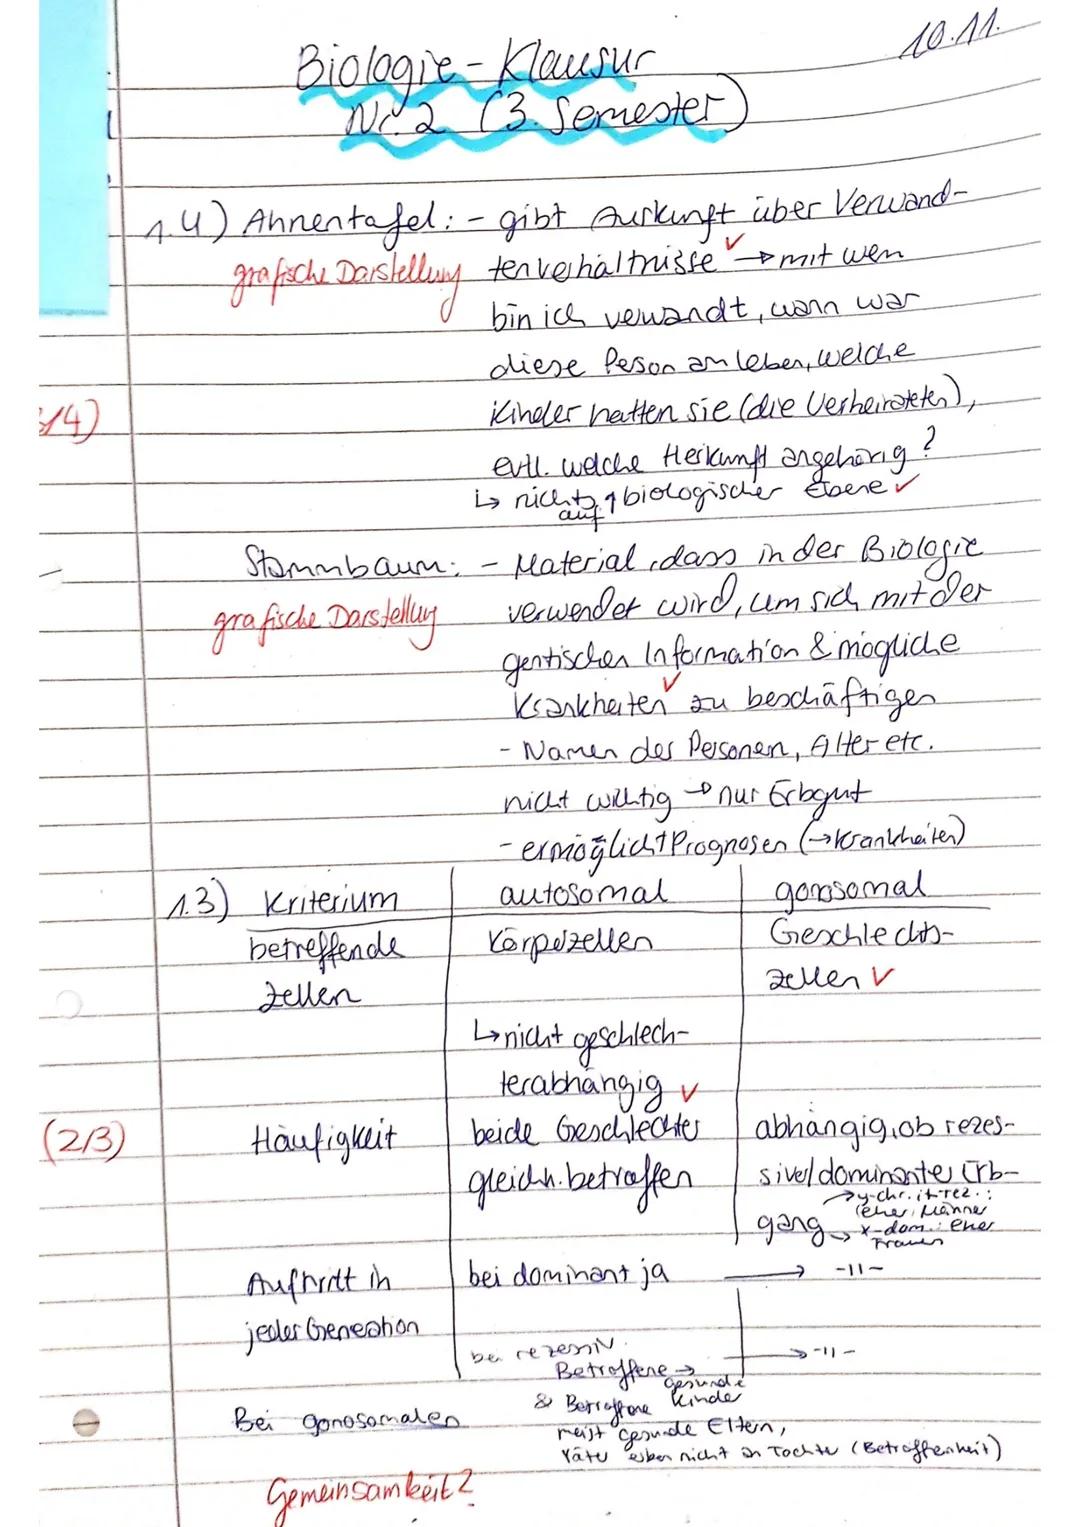 10.11.
Biologie-Klausur
Nr.2 (3. Semester)
1.4) Ahnentafel: - gibt Auskunft über Verwand-
grafische Darstellung tenverhältnisse ✓ → mit wem
bin ich verwandt, wann war
diese Person am leben, welche
14) Kinder hatten sie (die Verheirateten),
evtl. welche Herkunft angehörig?
↳ nicht auf biologischer Ebene ✓
Stammbaum: - Material, dass in der Biologie
grafische Darstellung verwendet wird, um sich mit der
gentischen Information & mögliche
Krankheiten ✓ zu beschäftigen
- Namen des Personen, Alter etc.
nicht wichtig → nur Erbgut
- ermöglicht Prognosen (→ Krankheiten)
1.3) Kriterium autosomal gonosomal
betreffende Körperzellen Geschlechts-
zellen zellen ✓
↳ nicht geschlech-
terabhängig ✓
(2/3) Häufigkeit beide Geschlechter abhängig, ob rezes-
gleich. betroffen sive/dominante Erb-
→ y-chr.
eher Männer
gang → x-dom.: eher
Frauen
Auftritt in bei dominant ja → -11-
jeder Generation
bei rezessiv → -11-
Betroffene → gesunde
& Betroffene Kinder
Bei gonosomalen meist gesunde Eltern,
Väter nicht an Tochter (Betroffenheit)
Gemeinsamkeit?